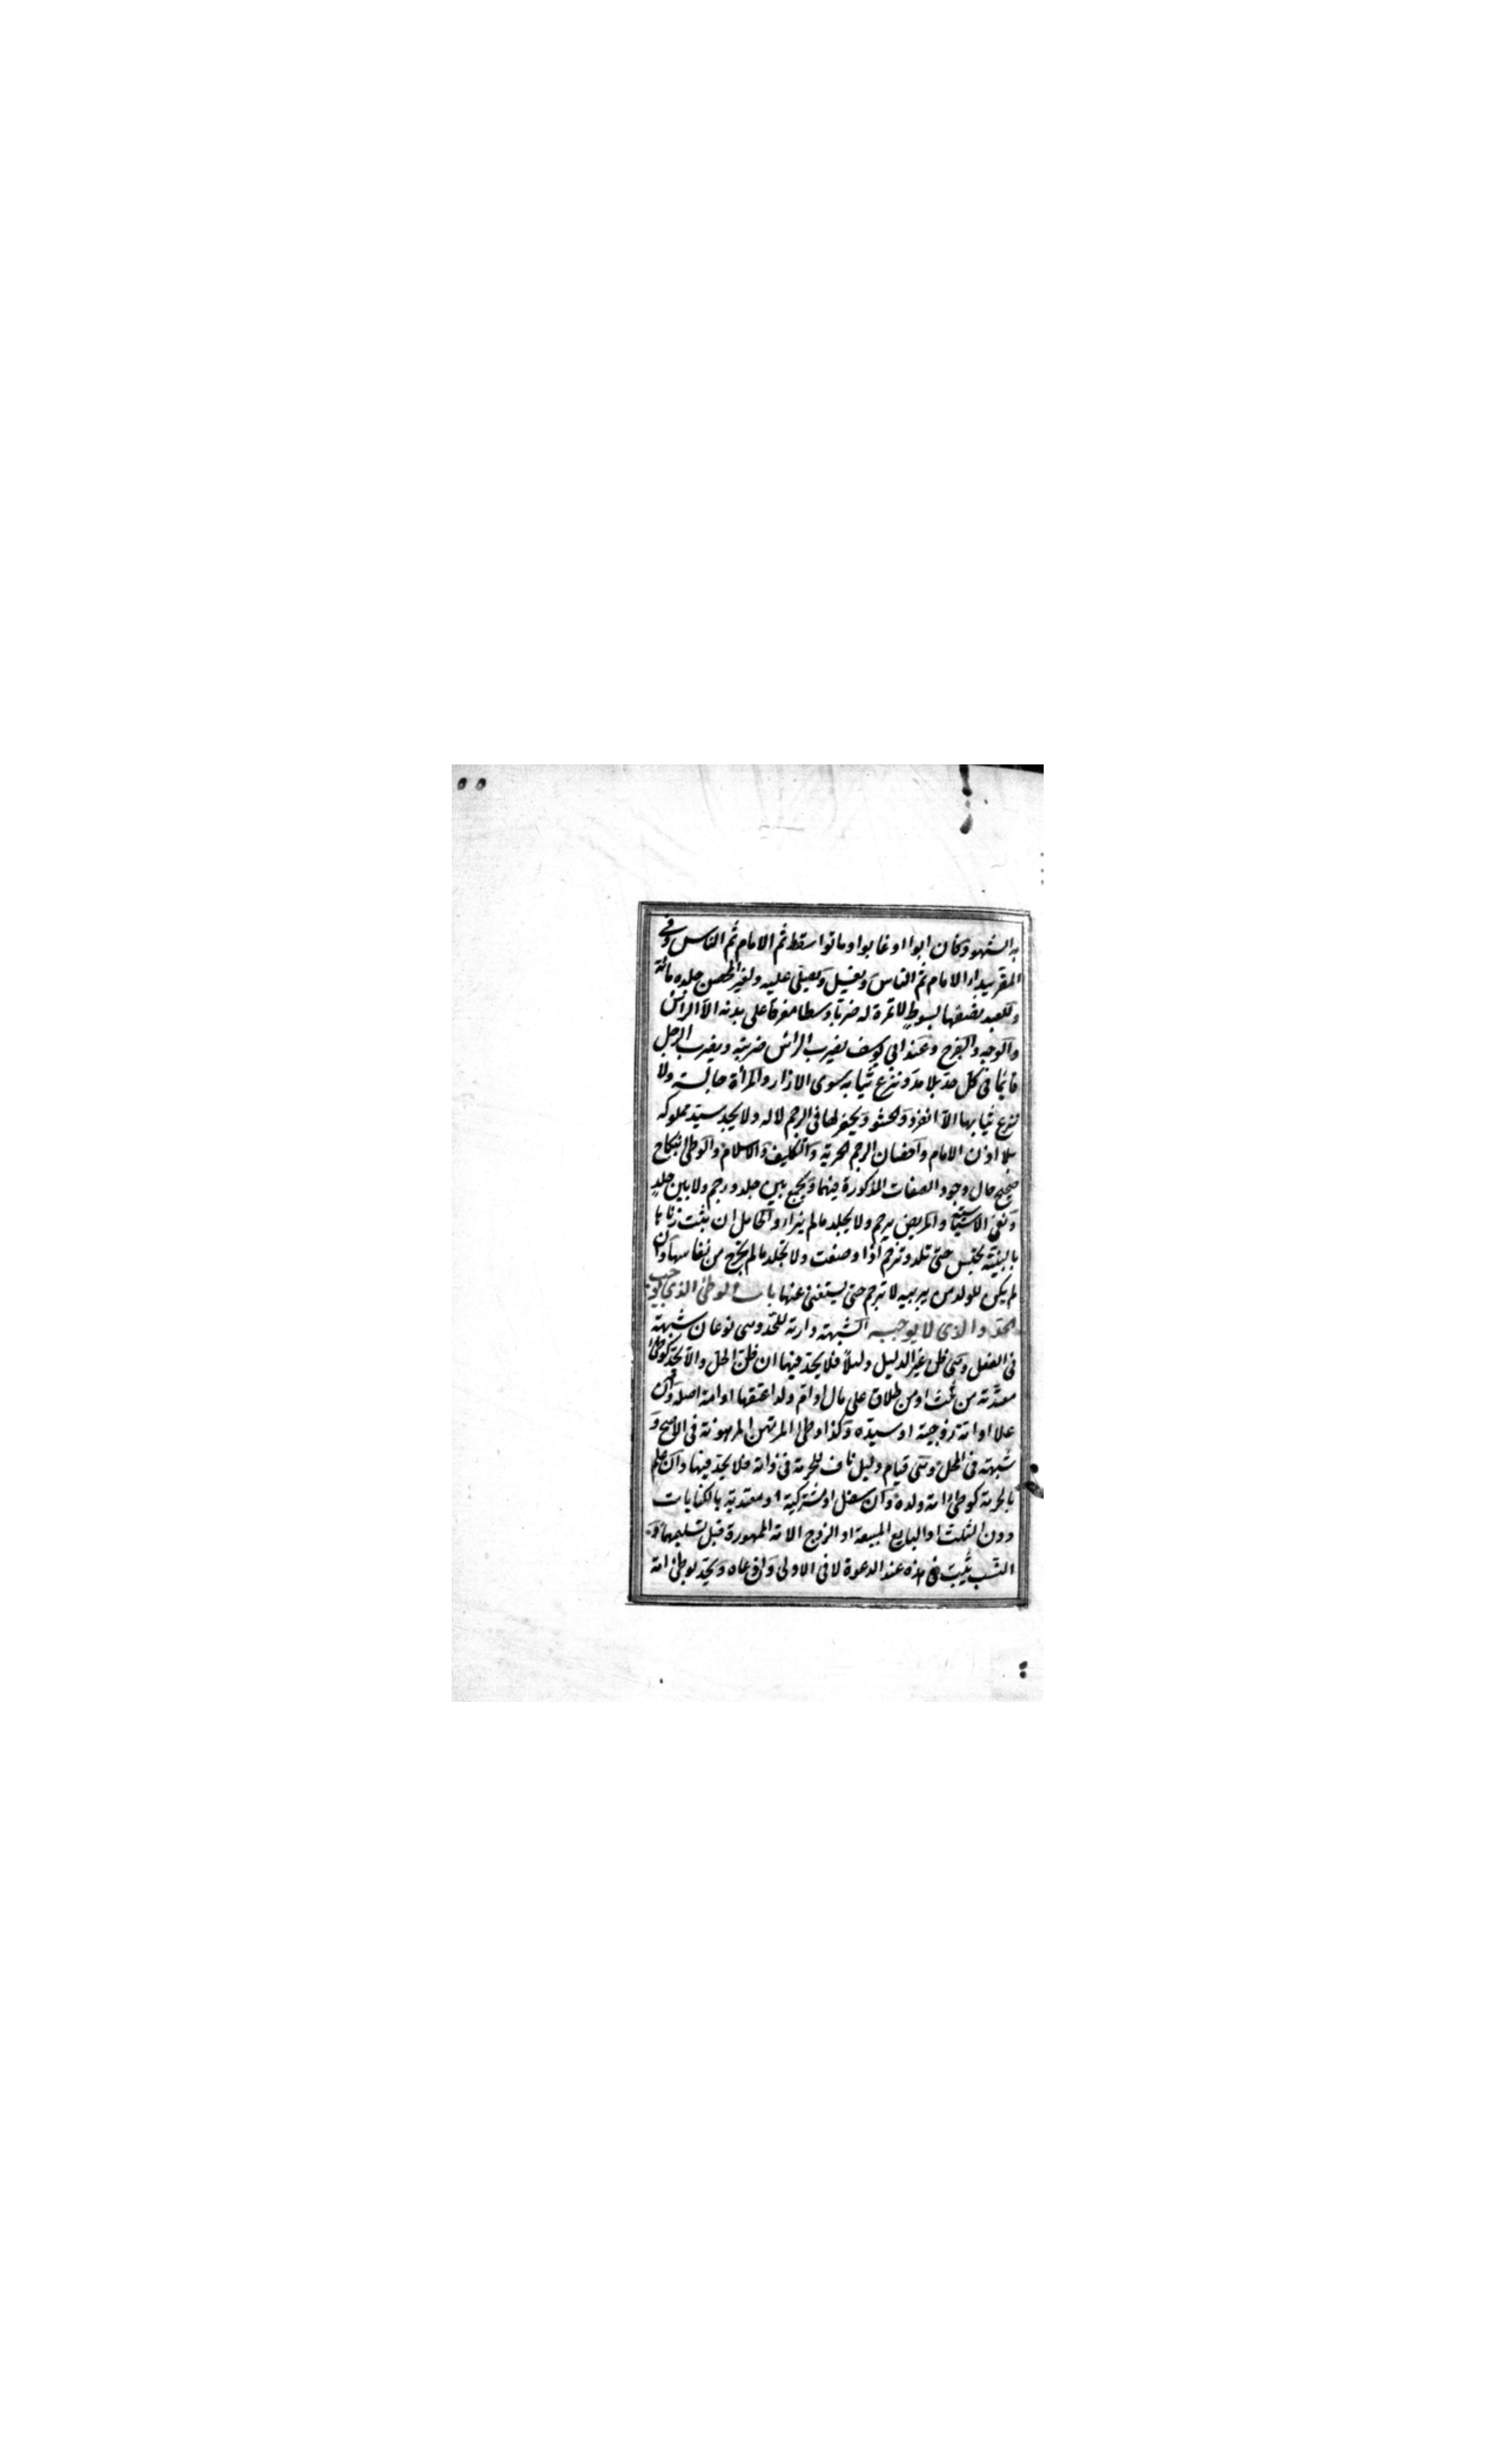 ٥٥
به الشهود فان ابوا او غابوا او ماتوا سقط ثم الامام ثم الناس وفى
المقر يبداء الامام ثم الناس ويغسل ويصلى عليه ولغير المحصن جلده مائة
وللعبد نصفها بسوط لا ثمرة له ضربا وسطا مفرقا على بدنه الا الراس
والوجه والفرج وعند ابى يوسف يضرب الراس ضربة ويضرب الرجل
قائما فى كل حد بلا مد وينزع ثيابه سوى الازار والمرأة جالسة ولا
تنزع ثيابها الا الفرو والحشو ويحفر لها فى الرجم لا له ولا يحد سيد مملوكه
بلا اذن الامام واحصان الرجم الحرية والتكليف والاسلام والوطى بنكاح
صحيح حال وجود الصفات المذكورة فيهما ولا يجمع بين جلد ورجم ولا بين جلد
ونفى الا سياسة والمريض يرجم ولا يجلد ما لم يبراء والحامل ان ثبت زناها
بالبينة تحبس حتى تلد وترجم اذا وضعت ولا تجلد ما لم تخرج من نفاسها وان
لم يكن للولد من يربيه لا ترجم حتى يستغنى عنها باب الوطئ الذى يوجب
الحد والذى لا يوجبه الشبهة دارئة للحد وهى نوعان شبهة
فى الفعل وهى ظن غير الدليل دليلا فلا يحد فيها ان ظن الحل والا يحد كوطئ
معتدته من ثلث او من طلاق على مال او ام ولد اعتقها او امة اصله وان
علا او امة زوجته او سيده وكذا وطئ المرتهن المرهونة فى الاصح و
شبهة فى المحل وهى قيام دليل ناف للحرمة فى ذاته فلا يحد فيها وان علم
بالحرمة كوطئ امة ولده وان سفل او مشتركية او معتدته بالكنايات
دون الثلث او البايع المبيعة او الزوج الامة الممهورة قبل تسليمها و
النسب يثبت فى هذه عند الدعوة لا فى الاولى وان ادعاه ويحد بوطئ امة